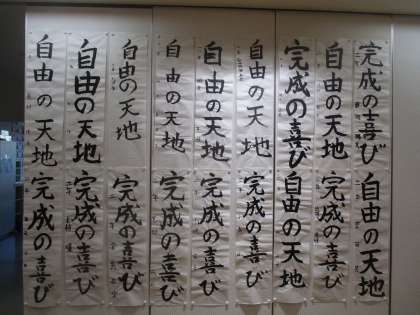 完成の喜び
自由の天地
完成の喜び
自由の天地
自由の天地
自由の天地
自由の天地
自由の天地
自由の天地
自由の天地
完成の喜び
自由の天地
完成の喜び
完成の喜び
完成の喜び
完成の喜び
完成の喜び
完成の喜び